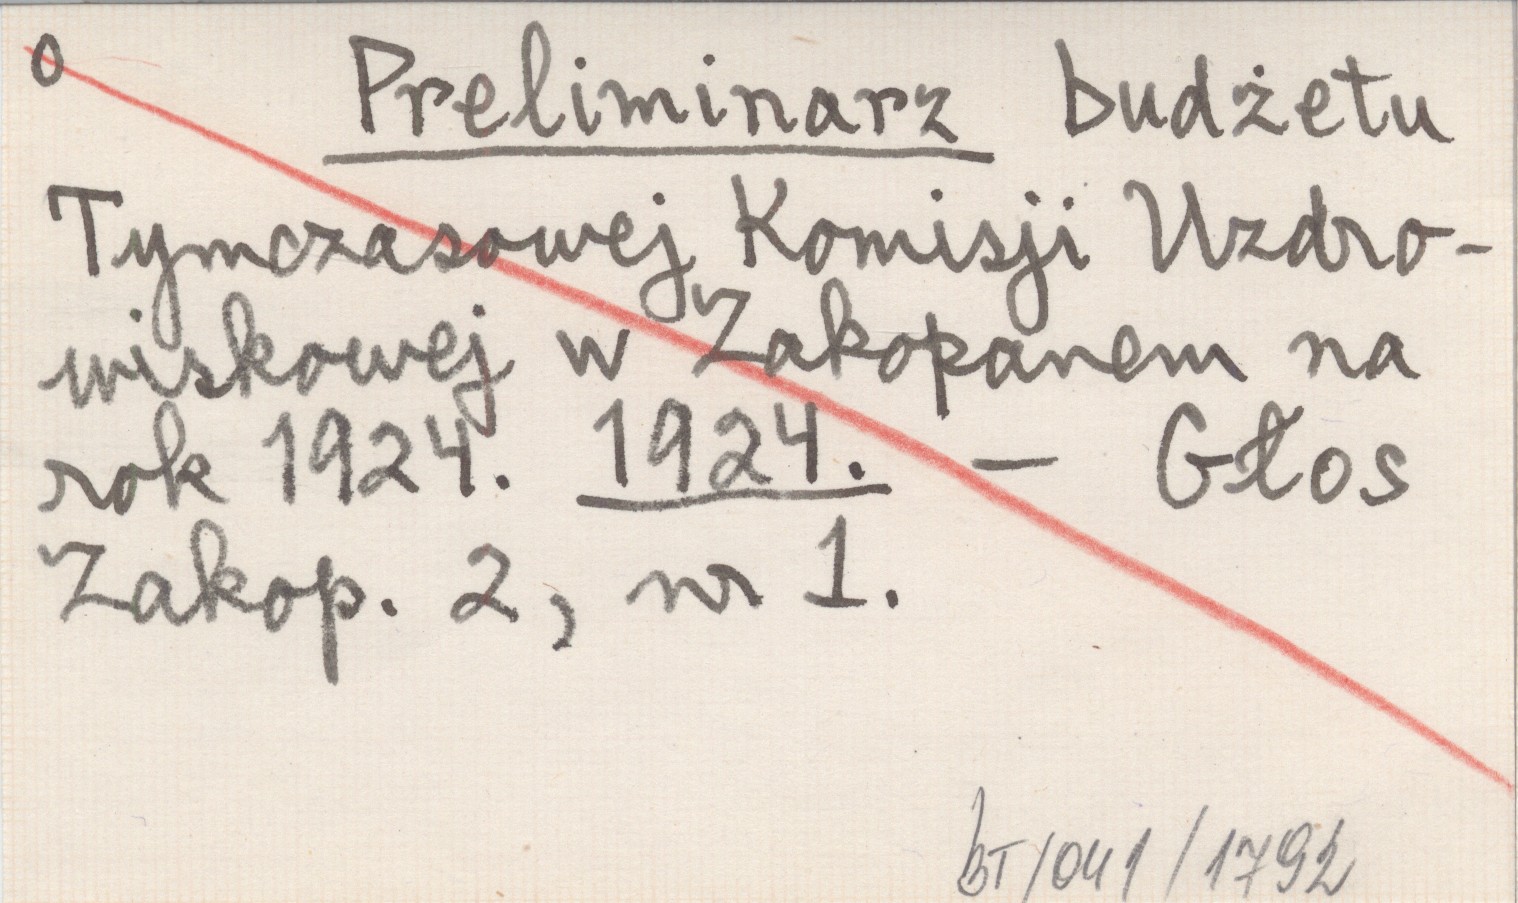 0 Preliminarz budżetu
Tymczasowej Komisji Uzdro-
wiskowej w Zakopanem na
rok 1924. 1924. — Głos
Zakop. 2, nr 1.
BT/041/1792